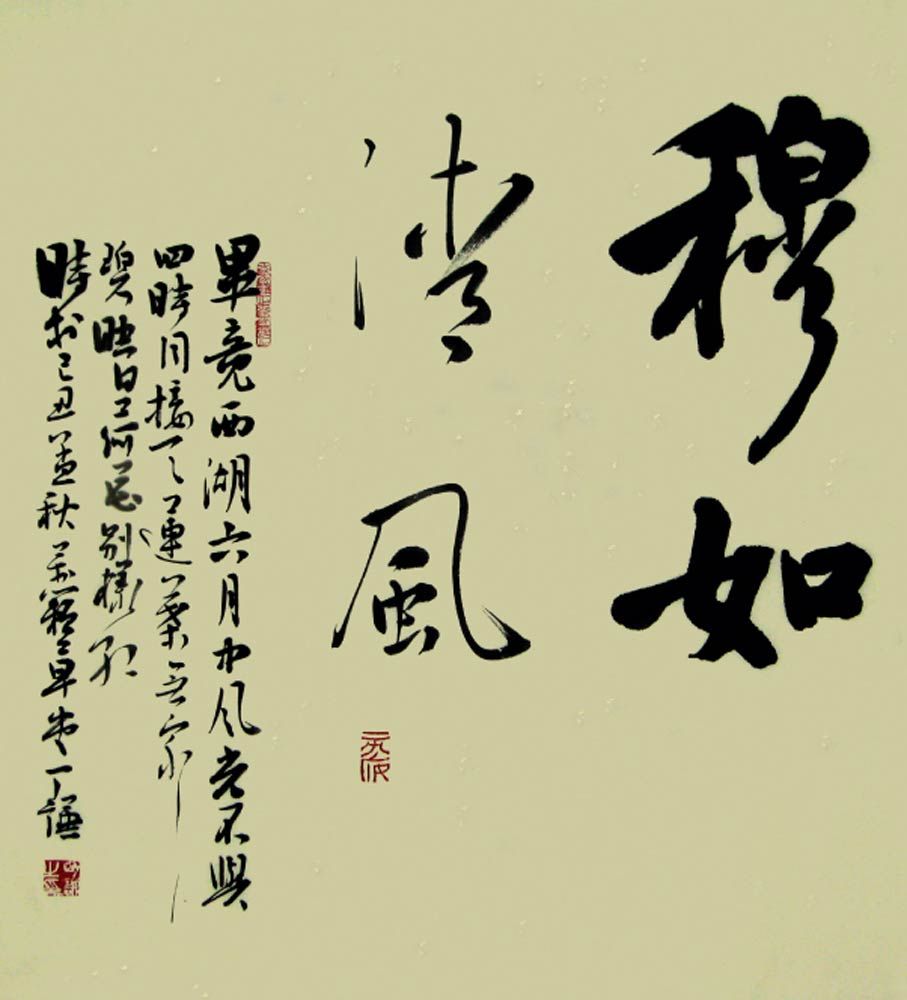 穆如
清風
畢竟西湖六月中風光不與
四時同接天連葉無窮
碧映日荷花別樣紅
時於己丑孟秋
謙